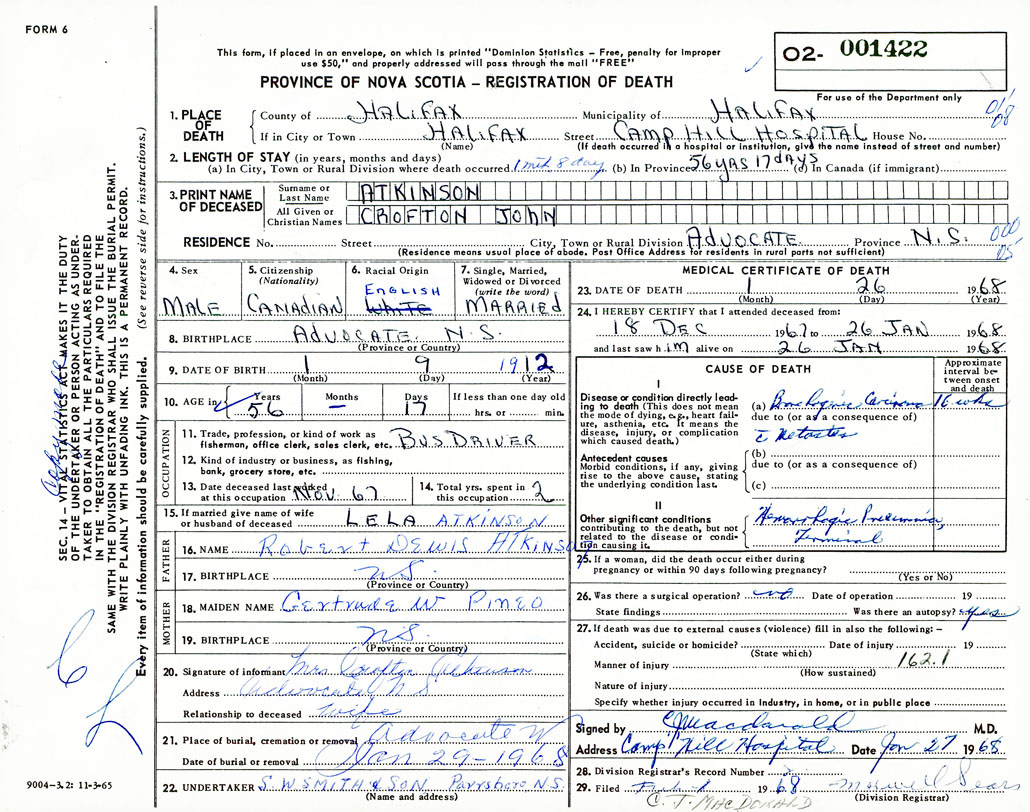 FORM 6
This form, if placed in an envelope, on which is printed "Dominion Statistics – Free, penalty for improper
use $50," and properly addressed will pass through the mail "FREE"
O2- 001422
PROVINCE OF NOVA SCOTIA – REGISTRATION OF DEATH
For use of the Department only
1. PLACE OF DEATH
County of HALIFAX Municipality of HALIFAX
If in City or Town HALIFAX Street CAMP HILL HOSPITAL House No.
(Name) (If death occurred in a hospital or institution, give the name instead of street and number)
2. LENGTH OF STAY (in years, months and days)
(a) In City, Town or Rural Division where death occurred 1 mth 8 day (b) In Province 56 YRS 17 days (d) In Canada (if immigrant)
3. PRINT NAME OF DECEASED
Surname or Last Name ATKINSON
All Given or Christian Names CROFTON JOHN
RESIDENCE No. Street City, Town or Rural Division ADVOCATE Province N.S.
(Residence means usual place of abode. Post Office Address for residents in rural parts not sufficient)
4. Sex MALE
5. Citizenship (Nationality) CANADIAN
6. Racial Origin ENGLISH WHITE
7. Single, Married, Widowed or Divorced (write the word) MARRIED
8. BIRTHPLACE ADVOCATE N.S.
(Province or Country)
9. DATE OF BIRTH 1 9 1912
(Month) (Day) (Year)
10. AGE in Years 56 Months – Days 17 If less than one day old hrs. or min.
OCCUPATION
11. Trade, profession, or kind of work as fisherman, office clerk, sales clerk, etc. BUS DRIVER
12. Kind of industry or business, as fishing, bank, grocery store, etc.
13. Date deceased last worked at this occupation NOV. 67
14. Total yrs. spent in this occupation 2
15. If married give name of wife or husband of deceased LELA ATKINSON
FATHER
16. NAME Robert DEWIS ATKINSON
17. BIRTHPLACE N.S.
(Province or Country)
MOTHER
18. MAIDEN NAME Gertrude W PINEO
19. BIRTHPLACE N.S.
(Province or Country)
20. Signature of informant Mrs Crofton Atkinson
Address Advocate N S
Relationship to deceased Wife
21. Place of burial, cremation or removal Advocate
Date of burial or removal Jan 29-1968
22. UNDERTAKER S. W SMITH & SON Parrsboro N.S.
(Name and address)
MEDICAL CERTIFICATE OF DEATH
23. DATE OF DEATH 1 26 1968
(Month) (Day) (Year)
24. I HEREBY CERTIFY that I attended deceased from:
18 DEC 1967 to 26 JAN 1968
and last saw him alive on 26 JAN 1968
CAUSE OF DEATH
Approximate interval between onset and death
I
Disease or condition directly leading to death (This does not mean the mode of dying, e.g., heart failure, asthenia, etc. It means the disease, injury, or complication which caused death.)
(a) Bronchogenic Carcinoma 16 wks
due to (or as a consequence of)
c̄ Metastes
Antecedent causes
Morbid conditions, if any, giving rise to the above cause, stating the underlying condition last.
(b)
due to (or as a consequence of)
(c)
II
Other significant conditions contributing to the death, but not related to the disease or condition causing it.
Hemorrhagic Pneumonia,
Terminal
25. If a woman, did the death occur either during pregnancy or within 90 days following pregnancy?
(Yes or No)
26. Was there a surgical operation? no Date of operation 19
State findings Was there an autopsy? yes
27. If death was due to external causes (violence) fill in also the following: –
Accident, suicide or homicide? Date of injury 19
(State which)
Manner of injury 162.1
(How sustained)
Nature of injury
Specify whether injury occurred in industry, in home, or in public place
Signed by CJMacdonald M.D.
Address Camp Hill Hospital Date Jan 27 1968
28. Division Registrar's Record Number
29. Filed 1968
(Division Registrar)
C. J. MACDONALD
SEC. 14 – VITAL STATISTICS ACT MAKES IT THE DUTY
OF THE UNDERTAKER OR PERSON ACTING AS UNDERTAKER TO OBTAIN ALL THE PARTICULARS REQUIRED
IN THE "REGISTRATION OF DEATH" AND TO FILE THE
SAME WITH THE DIVISION REGISTRAR WHO SHALL ISSUE THE BURIAL PERMIT.
WRITE PLAINLY WITH UNFADING INK. THIS IS A PERMANENT RECORD.
Every item of information should be carefully supplied. (See reverse side for instructions.)
9004-3.2: 11-3-65